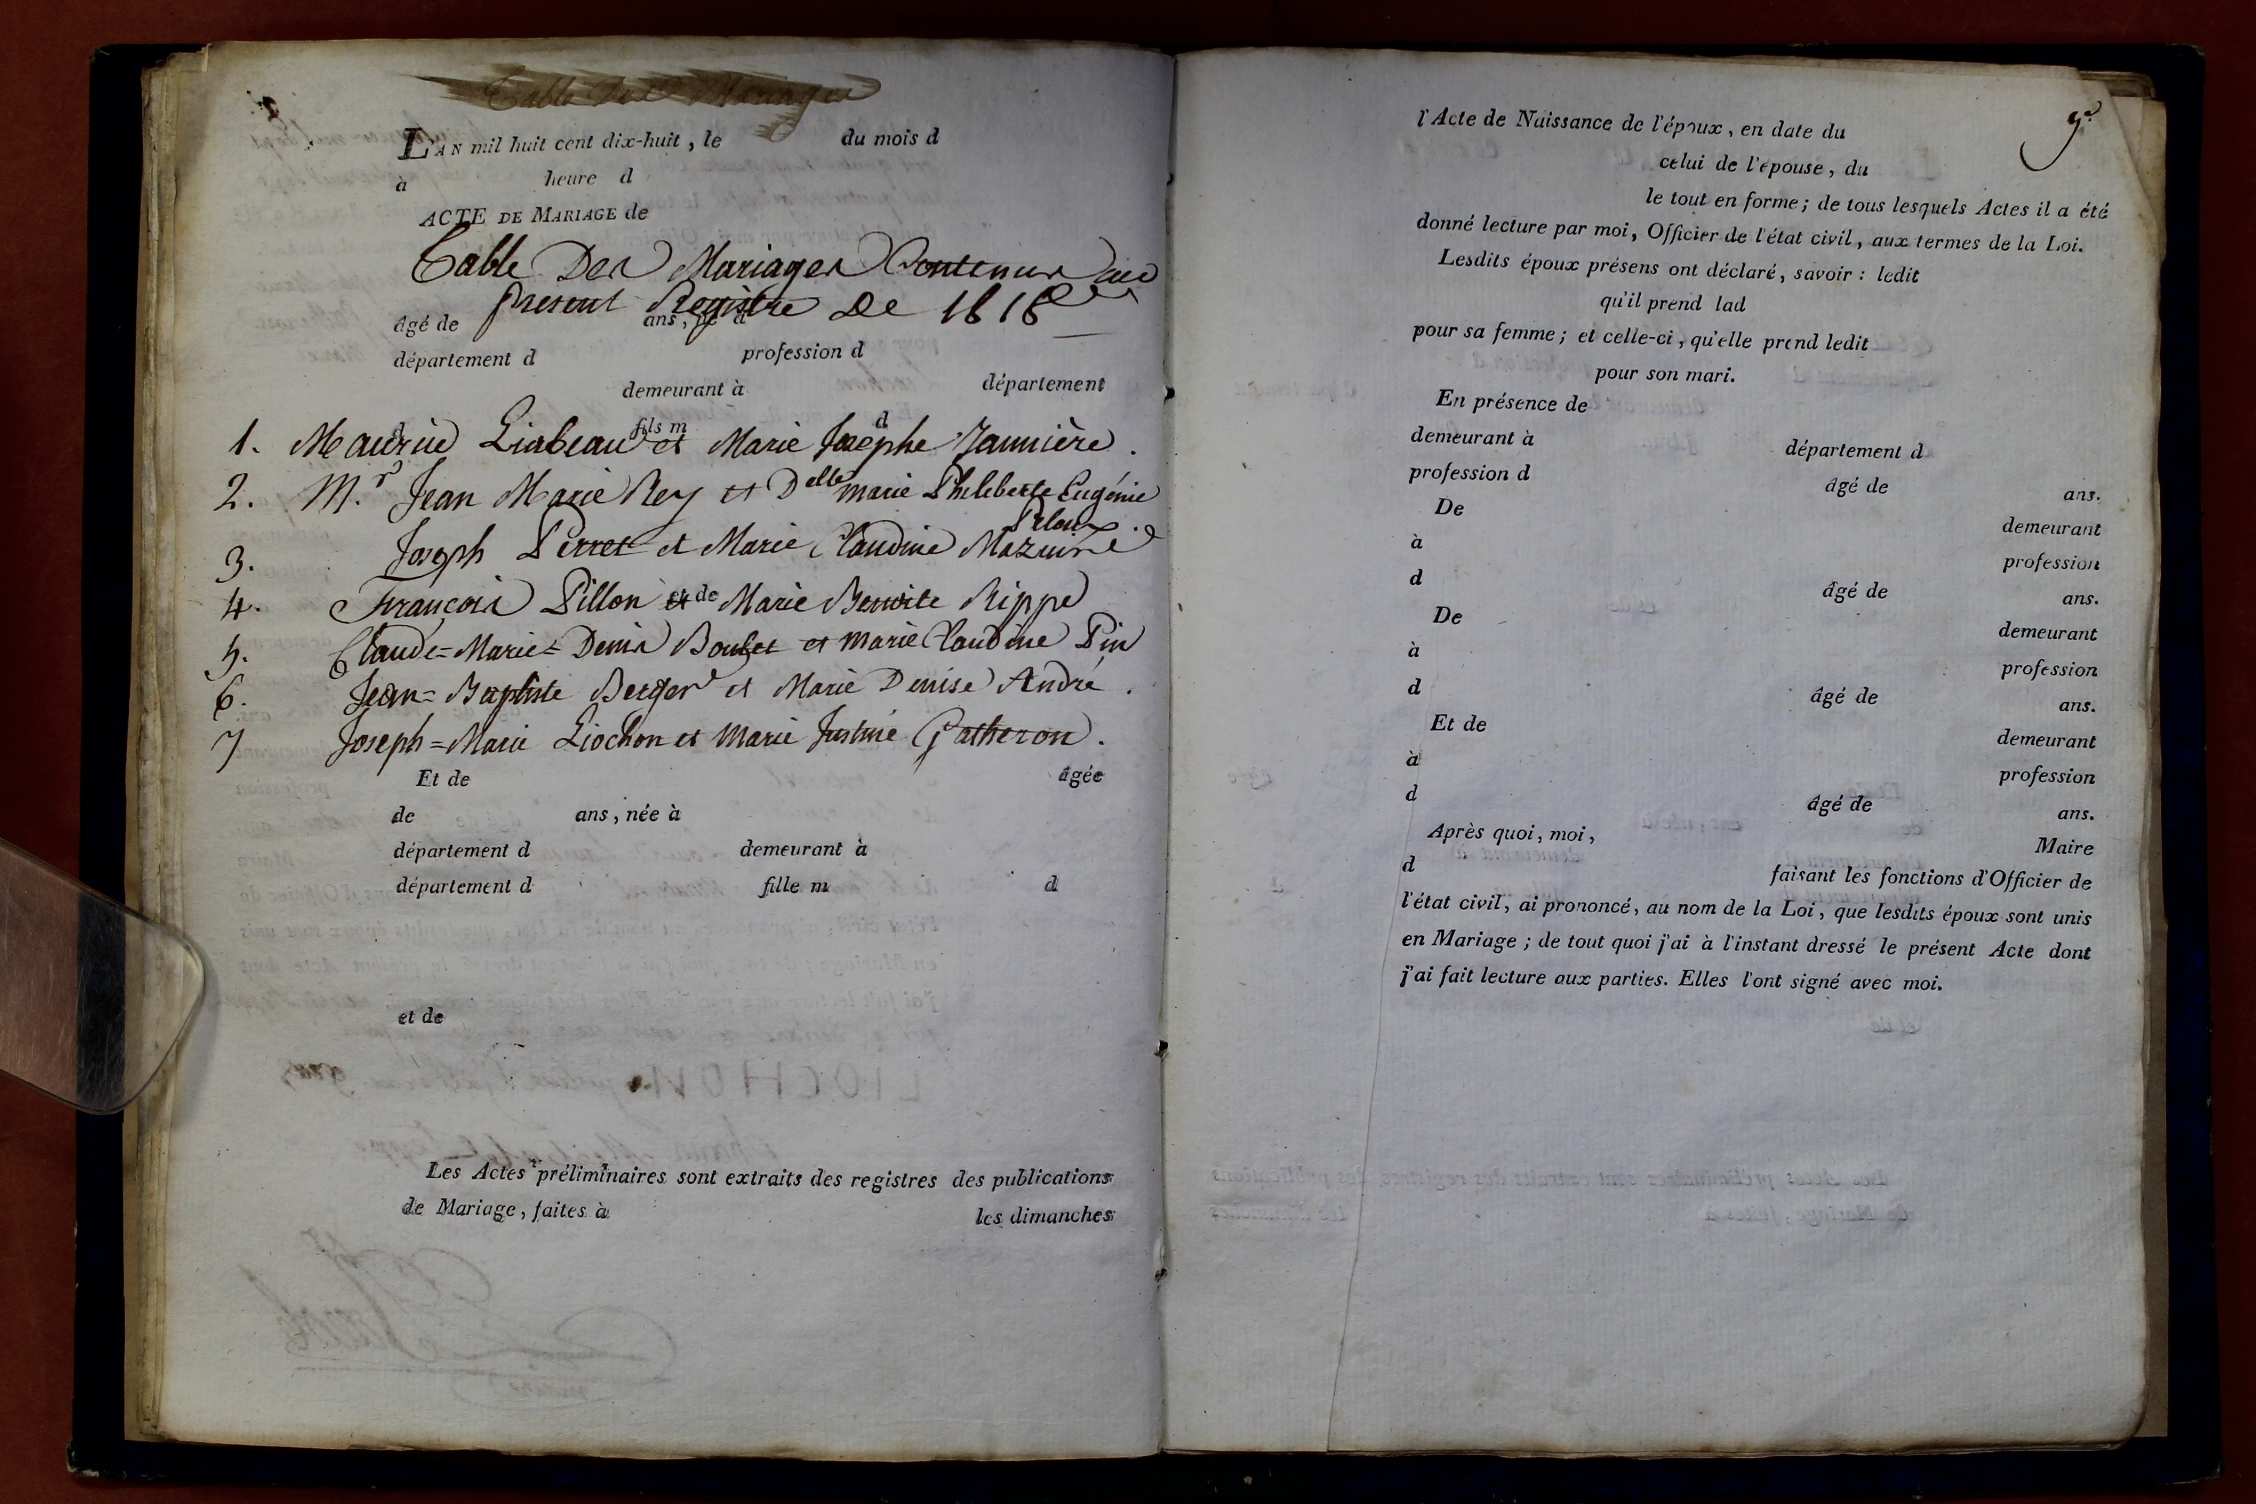 Table Des Mariages
L'AN mil huit cent dix-huit, le du mois d
à heure d
ACTE DE MARIAGE de
Table Des Mariages Contenus au
présent Registre De 1818
âgé de ans, né à
département d profession d
demeurant à département
d fils m d
1. Maurice Liabeau et Marie Josephe Jannière.
2. M.r Jean Marie Rey et Delle marie Phileberte Eugénie
3. Joseph Perret et Marie Claudine Mazuire
4. François Pillon et de Marie Benoite Rippe
5. Claude=Marie=Denis Boulet et Marie Claudine Pin
6. Jean=Baptiste Berger et Marie Denise André.
7 Joseph=Marie Liochon et Marie Justine Gatheron.
Et de âgée
de ans, née à
département d demeurant à
département d fille m d
et de
Les Actes préliminaires sont extraits des registres des publications
de Mariage, faites à les dimanches
9.e
l'Acte de Naissance de l'époux, en date du
celui de l'épouse, du
le tout en forme; de tous lesquels Actes il a été
donné lecture par moi, Officier de l'état civil, aux termes de la Loi.
Lesdits époux présens ont déclaré, savoir: ledit
qu'il prend lad
pour sa femme; et celle-ci, qu'elle prend ledit
pour son mari.
En présence de
demeurant à département d
profession d âgé de ans.
De demeurant
à profession
d âgé de ans.
De demeurant
à profession
d âgé de ans.
Et de demeurant
à profession
d âgé de ans.
Après quoi, moi, Maire
d faisant les fonctions d'Officier de
l'état civil, ai prononcé, au nom de la Loi, que lesdits époux sont unis
en Mariage; de tout quoi j'ai à l'instant dressé le présent Acte dont
j'ai fait lecture aux parties. Elles l'ont signé avec moi.